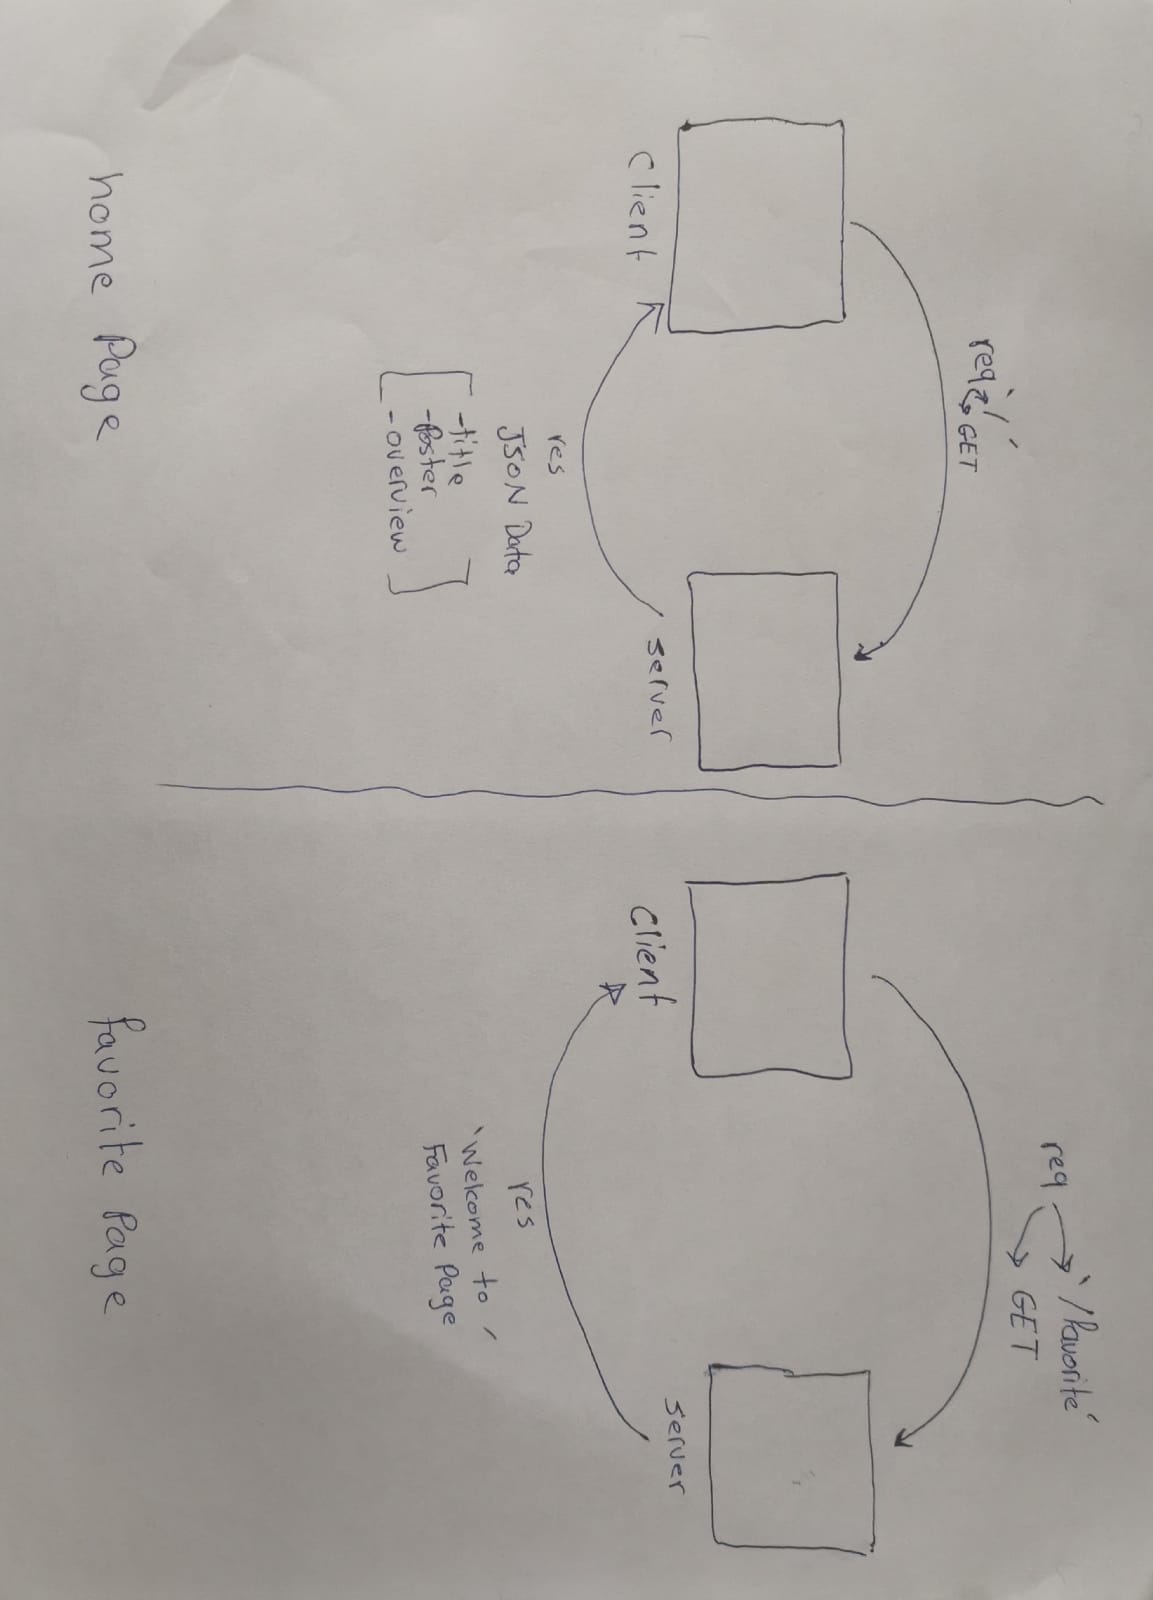 req '/'
GET
Client
server
res
JSON Data
-title
-Poster
-overview
home Page
req '/favorite'
GET
Client
server
res
'Welcome to
Favorite Page'
favorite Page